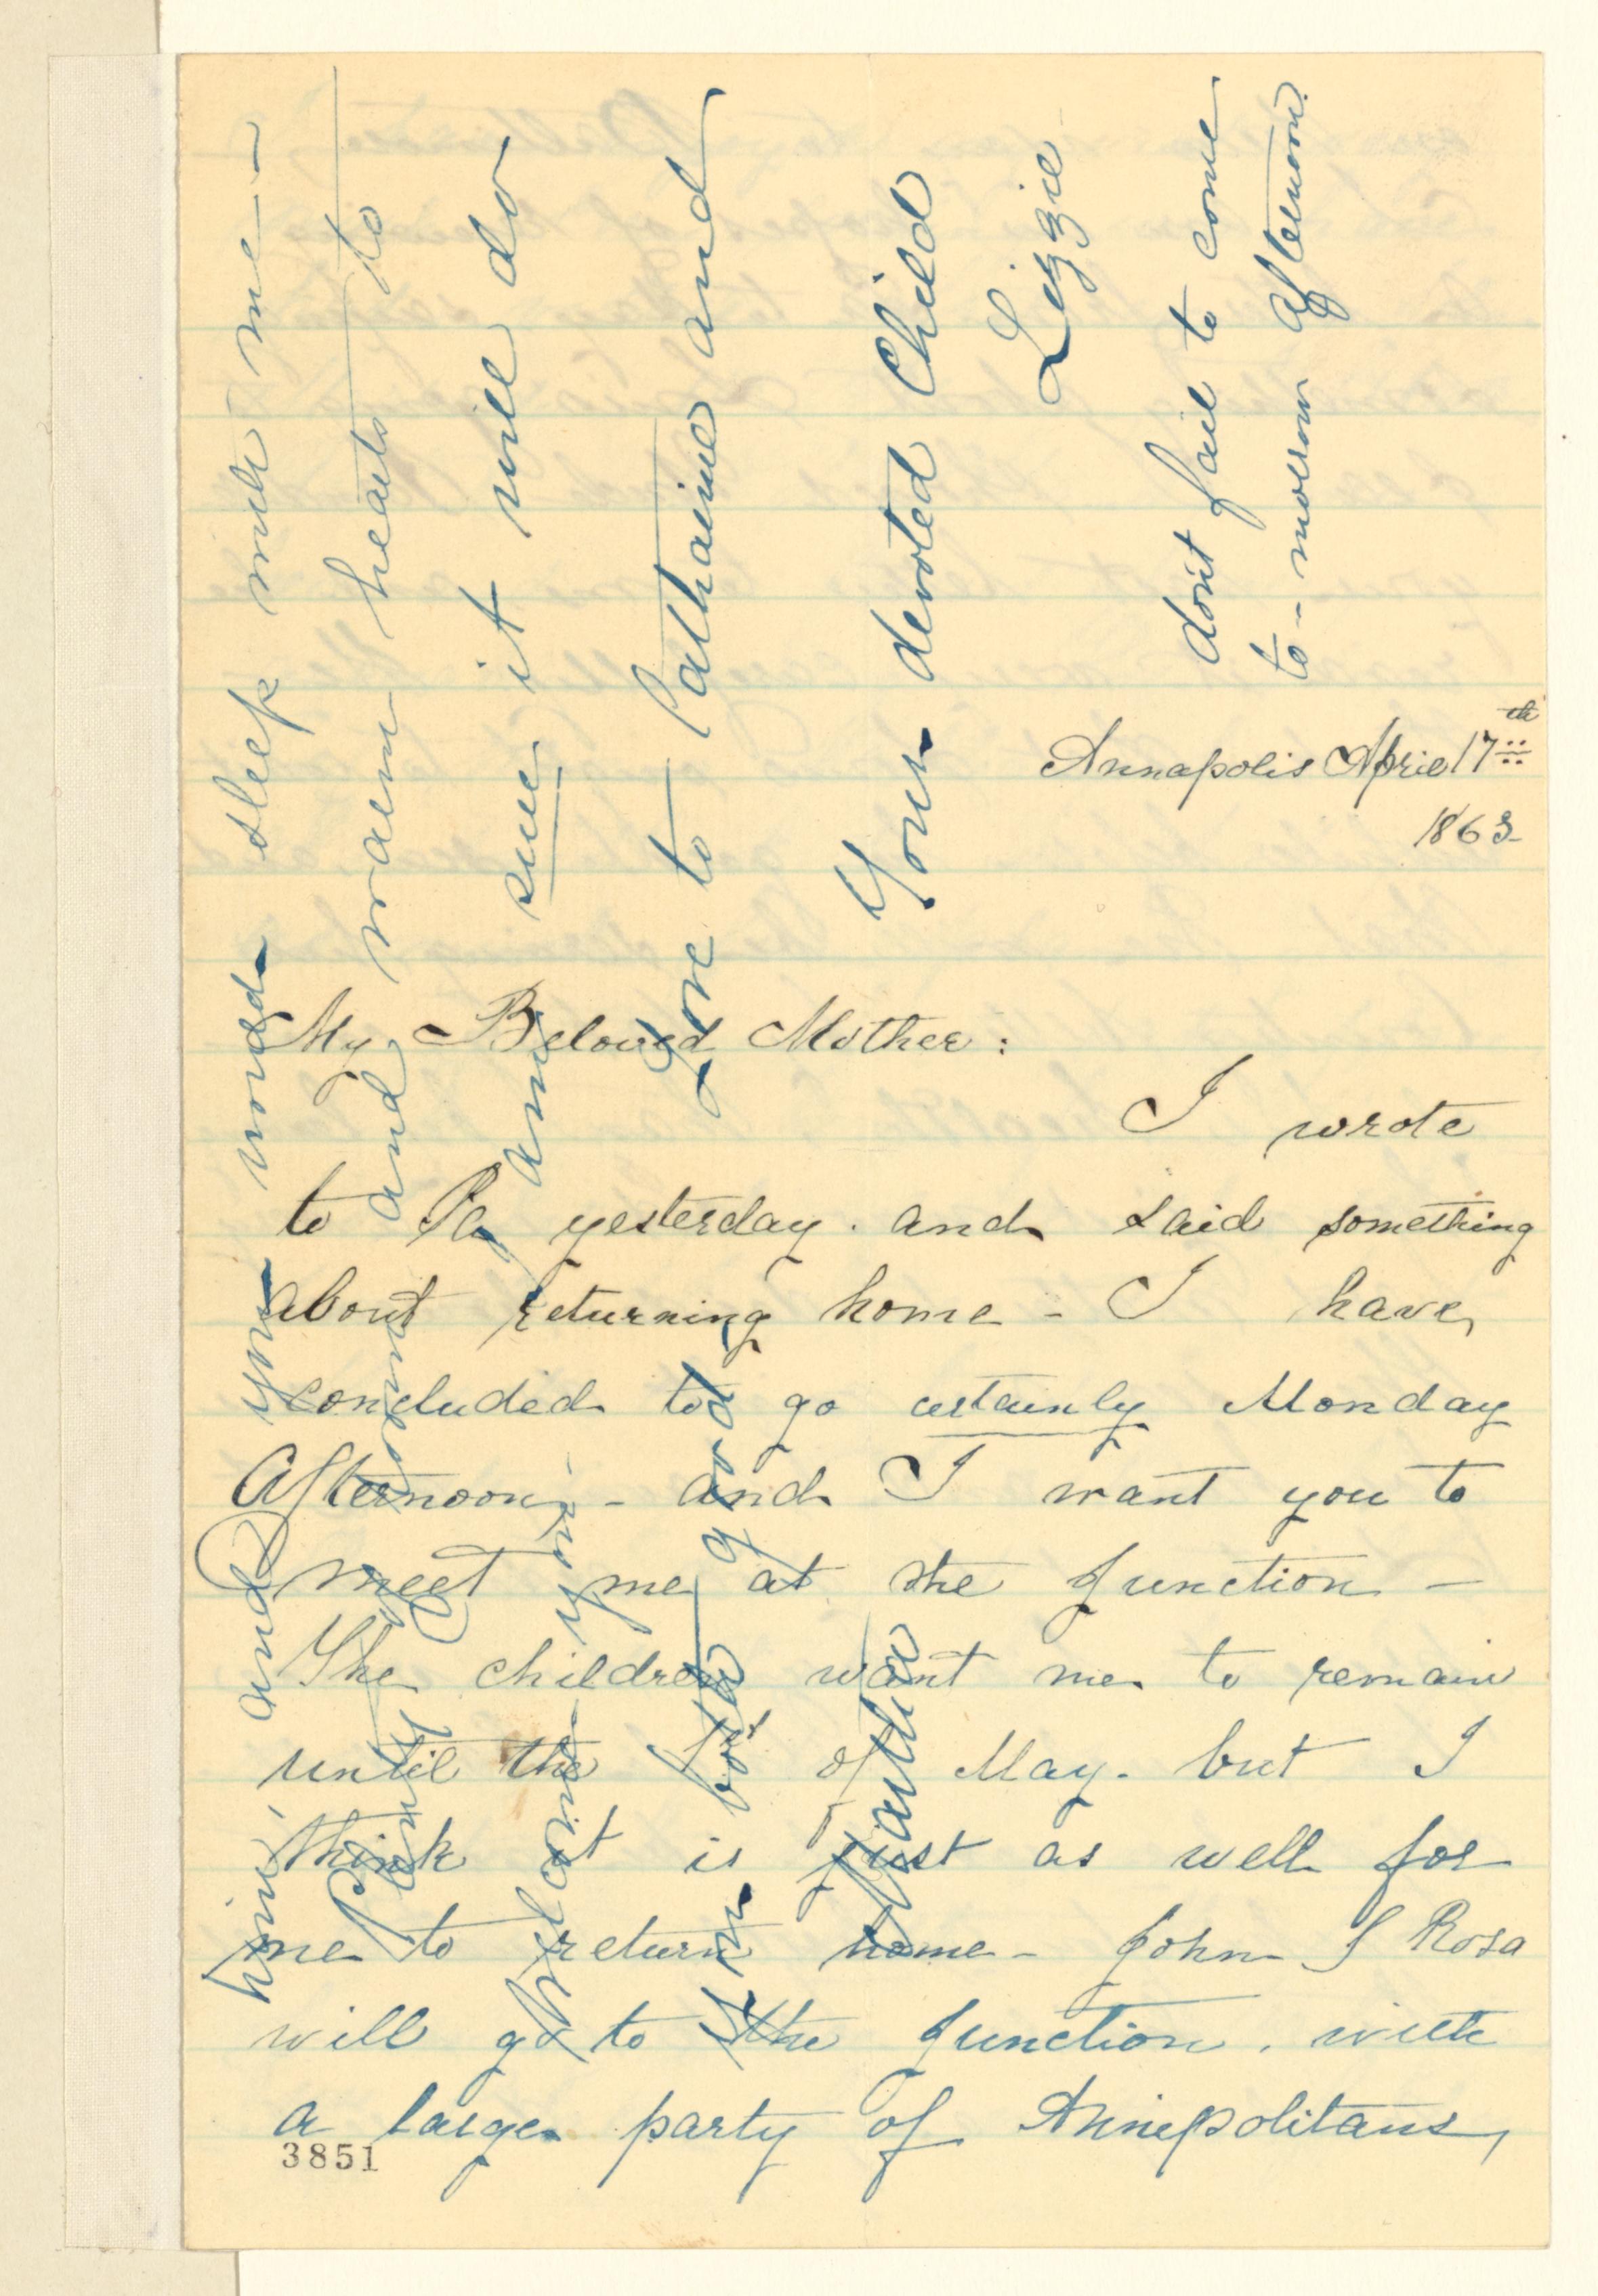 Annapolis April 17th
1863
My Beloved Mother:
I wrote
to Pa yesterday. and said something
about returning home - I have
concluded to go certainly Monday
Afternoon - and I want you to
meet me at the Junction -
The children want me to remain
until the of May. but I
think it is just as well for
me to return home - John & Rosa
will go to the Junction. with
a large party of Annepolitans,
him, and you would sleep with me -
Plenty room and warm hearts to
Welcome you- am sure it will do
you both good Love to Catharine and
Martha Your devoted Child
Lizzie
don't fail to come
to-morrow afternoon.
3851